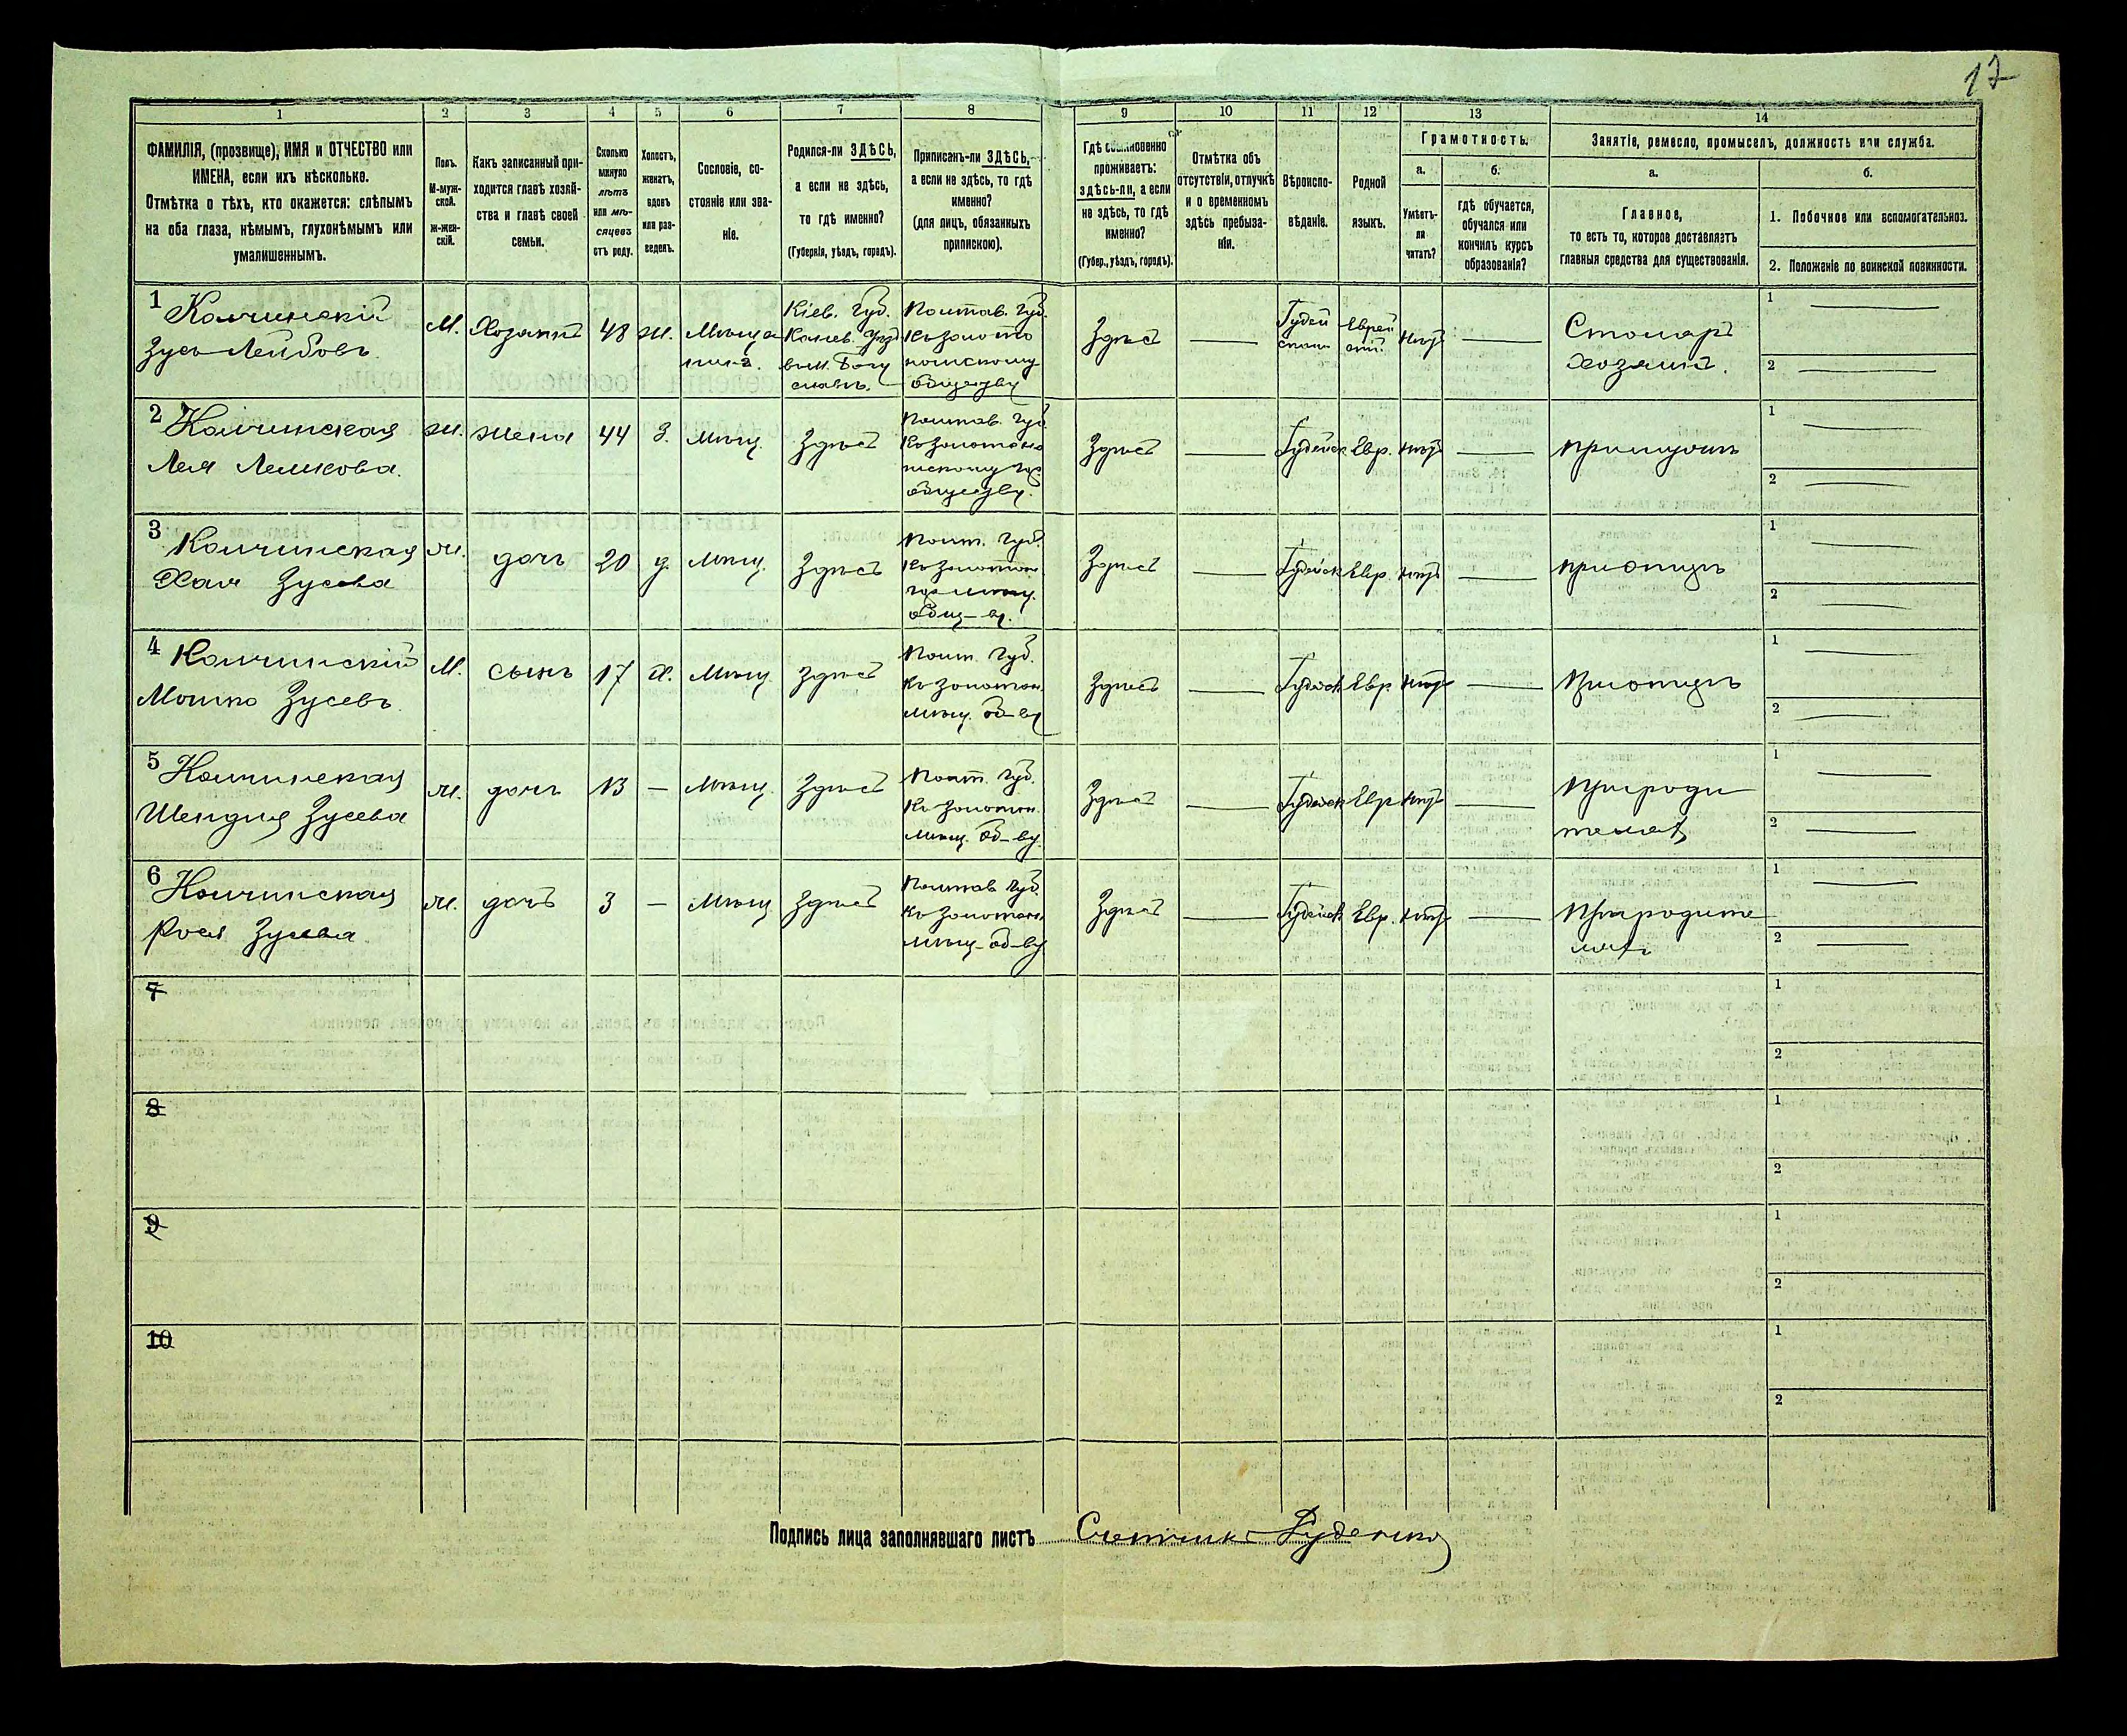 17
1
2
3
4
5
6
7
8
9
10
11
12
13
14
ФАМИЛІЯ, (прозвище), ИМЯ и ОТЧЕСТВО или
ИМЕНА, если ихъ нѣсколько.
Отмѣтка о тѣхъ, кто окажется: слѣпымъ
на оба глаза, нѣмымъ, глухонѣмымъ или
умалишеннымъ.
Полъ.
М-муж-
ской.
ж-жен-
скій.
Какъ записанный при-
ходится главѣ хозяй-
ства и главѣ своей
семьи.
Сколько
минуло
лѣтъ
или мѣ-
сяцевъ
отъ роду.
Холостъ,
женатъ,
вдовъ
или раз-
веденъ.
Сословіе, со-
стояніе или зва-
ніе.
Родился-ли ЗДѢСЬ,
а если не здѣсь,
то гдѣ именно?
(Губернія, уѣздъ, городъ).
Приписанъ-ли ЗДѢСЬ,
а если не здѣсь, то гдѣ
именно?
(для лицъ, обязанныхъ
припиской).
Гдѣ обыкновенно
проживаетъ:
здѣсь-ли, а если
не здѣсь, то гдѣ
именно?
(Губер., уѣздъ, городъ).
Отмѣтка объ
отсутствіи, отлучкѣ
и о временномъ
здѣсь пребыва-
ніи.
Вѣроиспо-
вѣданіе.
Родной
языкъ.
Грамотность.
а.
Умѣетъ-
ли
читать?
б.
гдѣ обучается,
обучался или
кончилъ курсъ
образованія?
Занятіе, ремесло, промыселъ, должность или служба.
а.
Главное,
то есть то, которое доставляетъ
главныя средства для существованія.
б.
1. Побочное или вспомогательное.
2. Положеніе по воинской повинности.
1
Колчинскій
Зусь Лейбовъ
М.
Хозяинъ
48
Ж.
Мѣща
нинъ.
Кіев. Губ.
Канев. Уѣз
Богу
славъ.
Полтав. Губ.
Къ Золото
ношскому
обществу
Здѣсь
Іудей
ское
Еврей
скій
Нѣтъ
Столяръ
хозяинъ.
1
2
2
Колчинская
Лея
Ж.
жена
44
З.
Мѣщ.
Здѣсь
Полтав. Губ.
Къ Золотоно
шскому
обществу.
Здѣсь
Іудейск
Евр.
Нѣтъ
при мужѣ
1
2
3
Колчинская
Хая Зусева
ж.
дочь
20
д.
Мѣщ.
Здѣсь
Полт. Губ.
Къ Золотон
мѣщ.
общ-ву.
Здѣсь
Іудейск
Евр.
Нѣтъ
при отцѣ
1
2
4
Колчинскій
Мошко Зусевъ
М.
сынъ
17
Х.
Мѣщ.
Здѣсь
Полт. Губ.
Къ Золотон.
мѣщ. об-ву
Здѣсь
Іудейск
Евр
Нѣтъ
При отцѣ
1
2
5
Колчинская
Шендля Зусева
ж.
дочь
13
—
Мѣщ.
Здѣсь
Полт. Губ.
Къ Золотон.
Мѣщ. об-ву.
Здѣсь
Іудейск
Евр
Нѣтъ
При роди
теляхъ
1
2
6
Колчинская
Рося Зусева
ж.
дочь
3
—
Мѣщ
Здѣсь
Полтав Губ.
Къ Золотон.
Мѣщ-об-ву
Здѣсь
Іудейск
Евр.
Нѣтъ
При родите
ляхъ
1
2
7
1
2
8
1
2
9
1
2
10
1
2
Подпись лица заполнявшаго листъ Счетчикъ Руденко